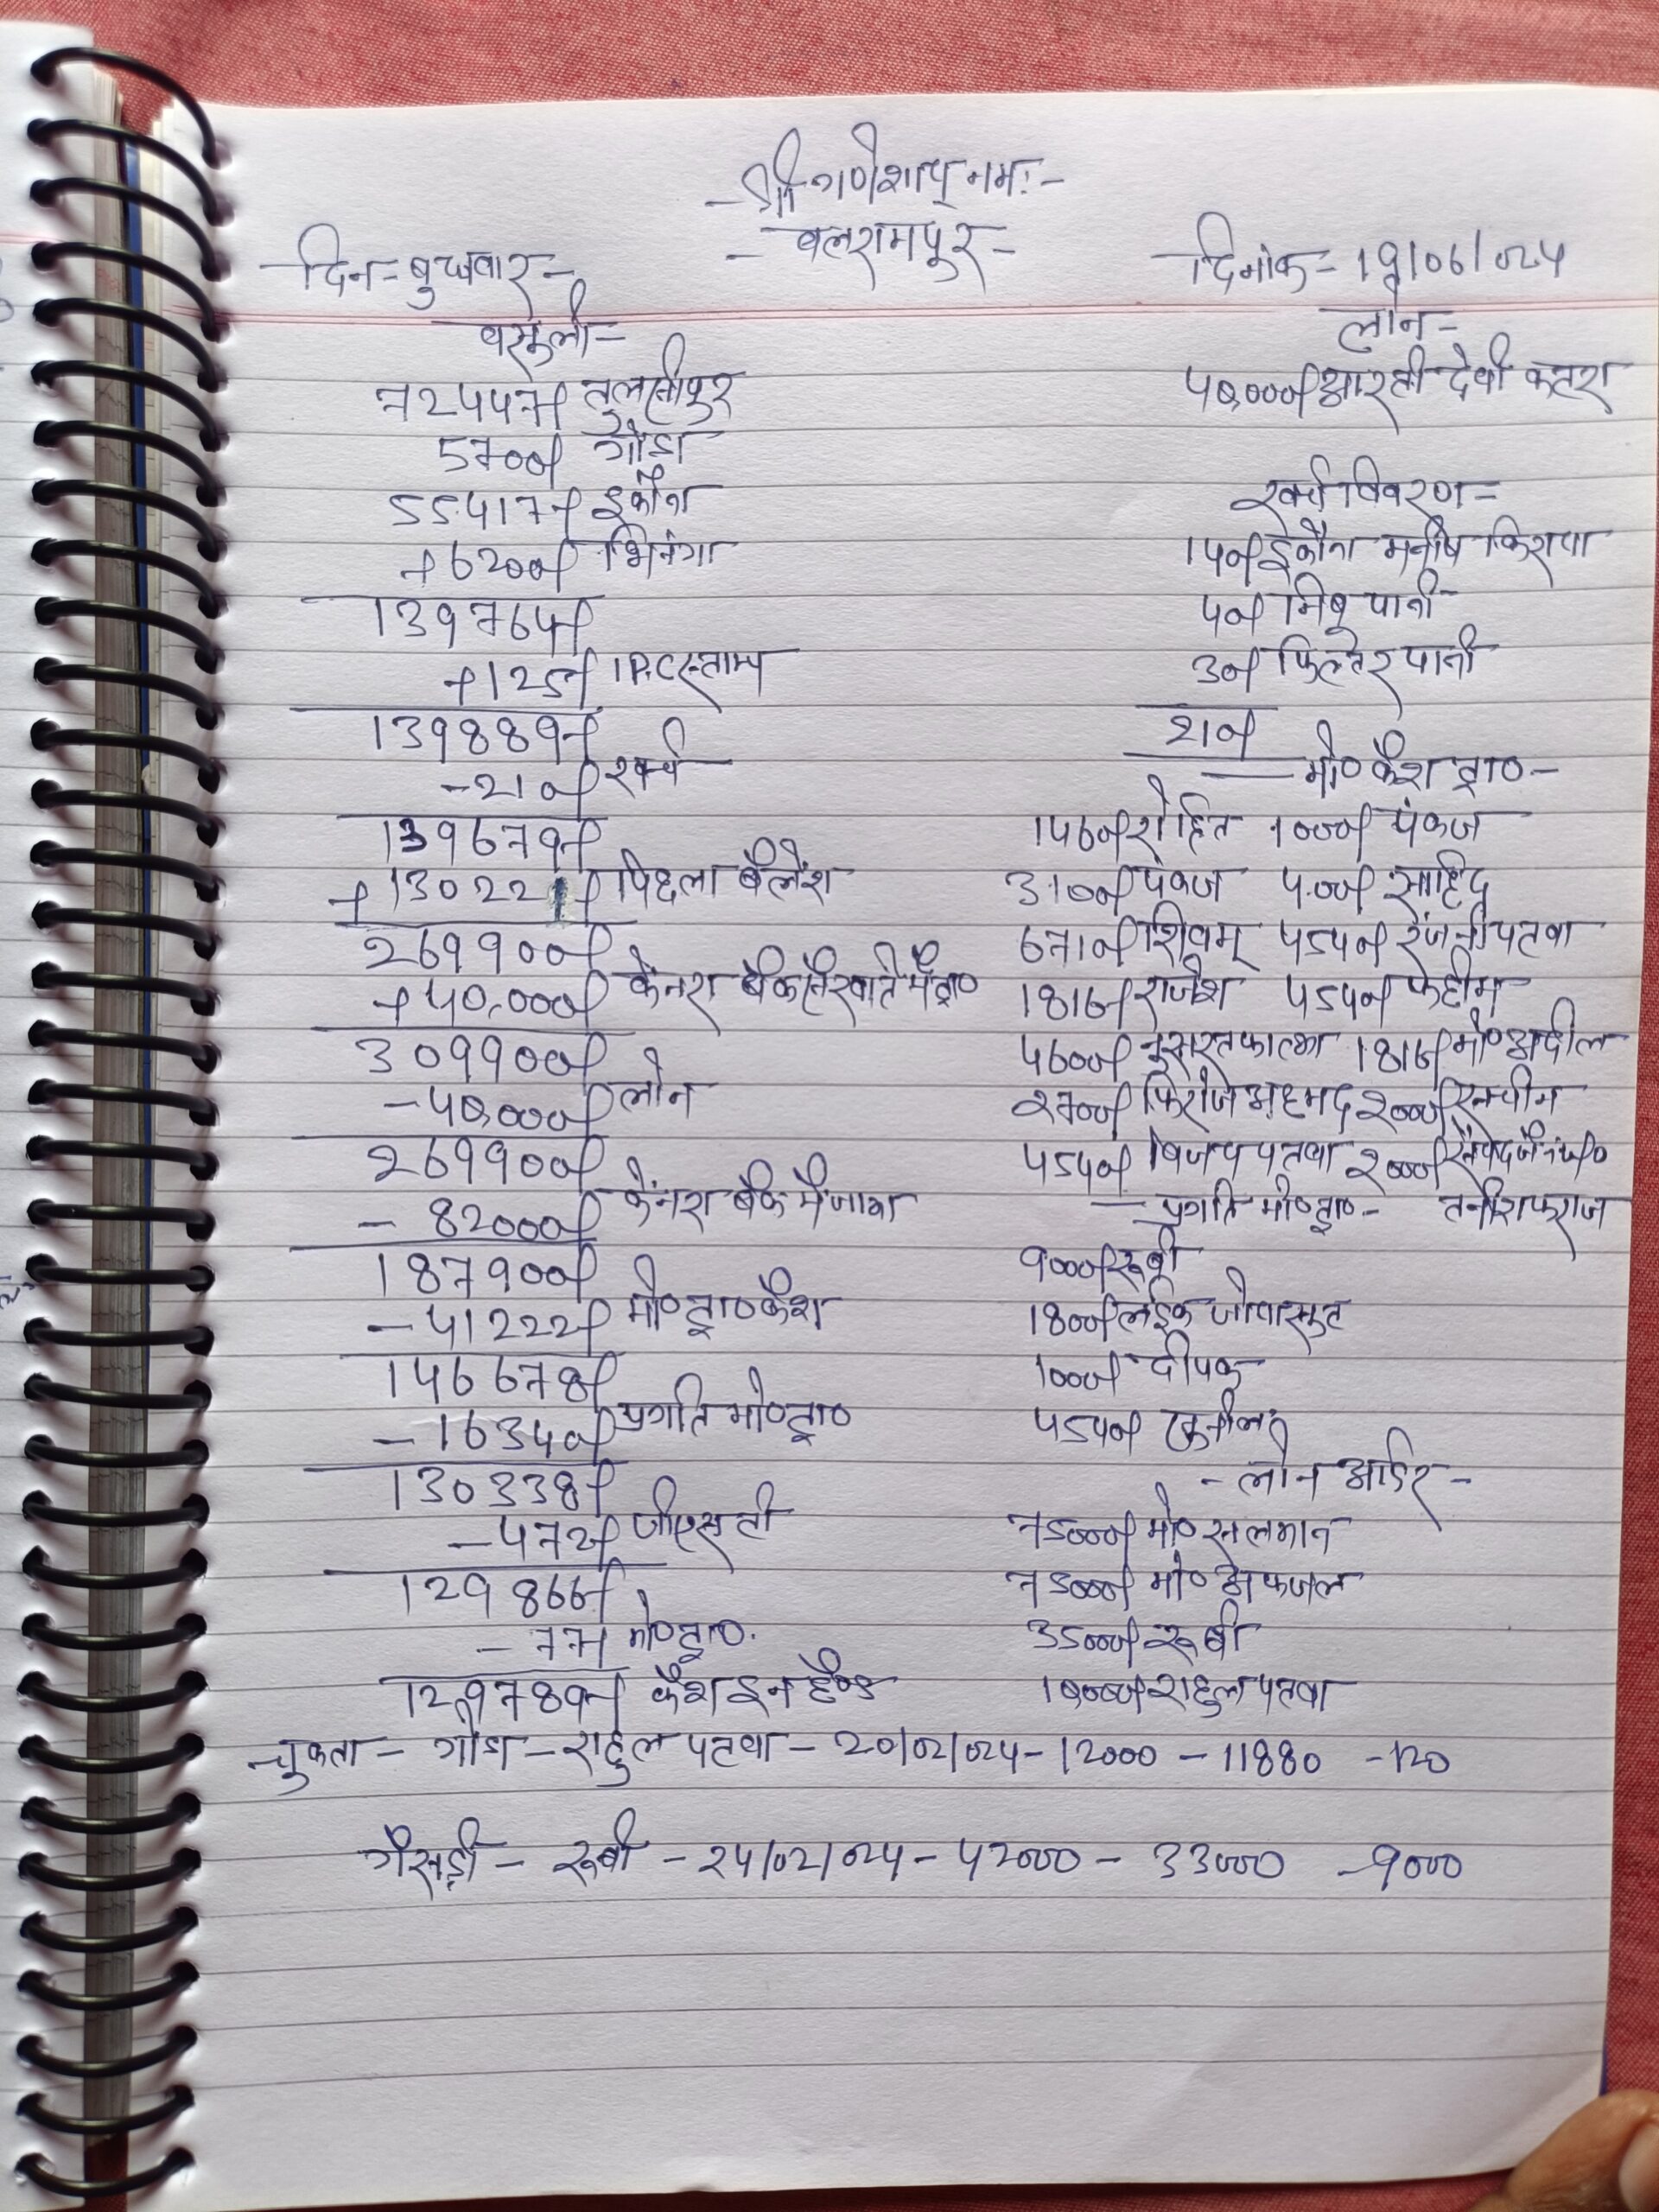 -श्री गणेशाय् नमः-
-बलरामपुर-
-दिन=बुधवार-
-दिनांक=19/06/024
वसूली-
72447/ तुलसीपुर
5700/ गोंडा
55417/ इकौना
+6200/ भिनंगा
139764/
+125/ I.P.C स्ताम्प
139889/
-210/ खर्च
139679/
+130221/ पिछला बैलेंश
269900/
+40,000/ केनरा बैंक खाते में ट्रा०
309900/
-40,000/ लोन
269900/
-82000/ केंनरा बैंक मैं जामा
187900/
-41222/ मो०ट्रा०कैश
146678/
-16340/ प्रगति मो०ट्रा०
130338/
-472/ जीएस टी
129866/
-77/ मो०ट्रा०.
129789/ कैश इन हैण्ड
लोन-
40,000/ आरती देवी कतरा
खर्च विवरण=
140/ इकौना मनीष किराया
40/ निबू पानी
30/ फिल्तेर पानी
210/
मो० कैश ट्रा०-
1460/ रोहित 1000/ पंकज
3100/ पंकज 400/ साहिद
6710/ शिवम् 4540/ रंजनी पटवा
1816/ राजेश 4540/ फहीम
4600/ नुसरत फात्मा 1816/ मो० आदील
2700/ फिरोज अहमद 2000/
4540/ विजय पटवा 2000/
-प्रगति मो०ट्रा०-
9000/ रूबी
1800/ लईक
1000/ दीपक
4540/ सुनील
-लोन आर्डर-
75000/ मो० सलमान
75000/ मो० अफजल
35000/ रूबी
10,000/ राहुल पटवा
चुकता - गोंडा - राहुल पटवा - 20/02/024 - 12000 - 11880 - 120
गैसड़ी - रूबी - 24/02/024 - 42000 - 33000 - 9000